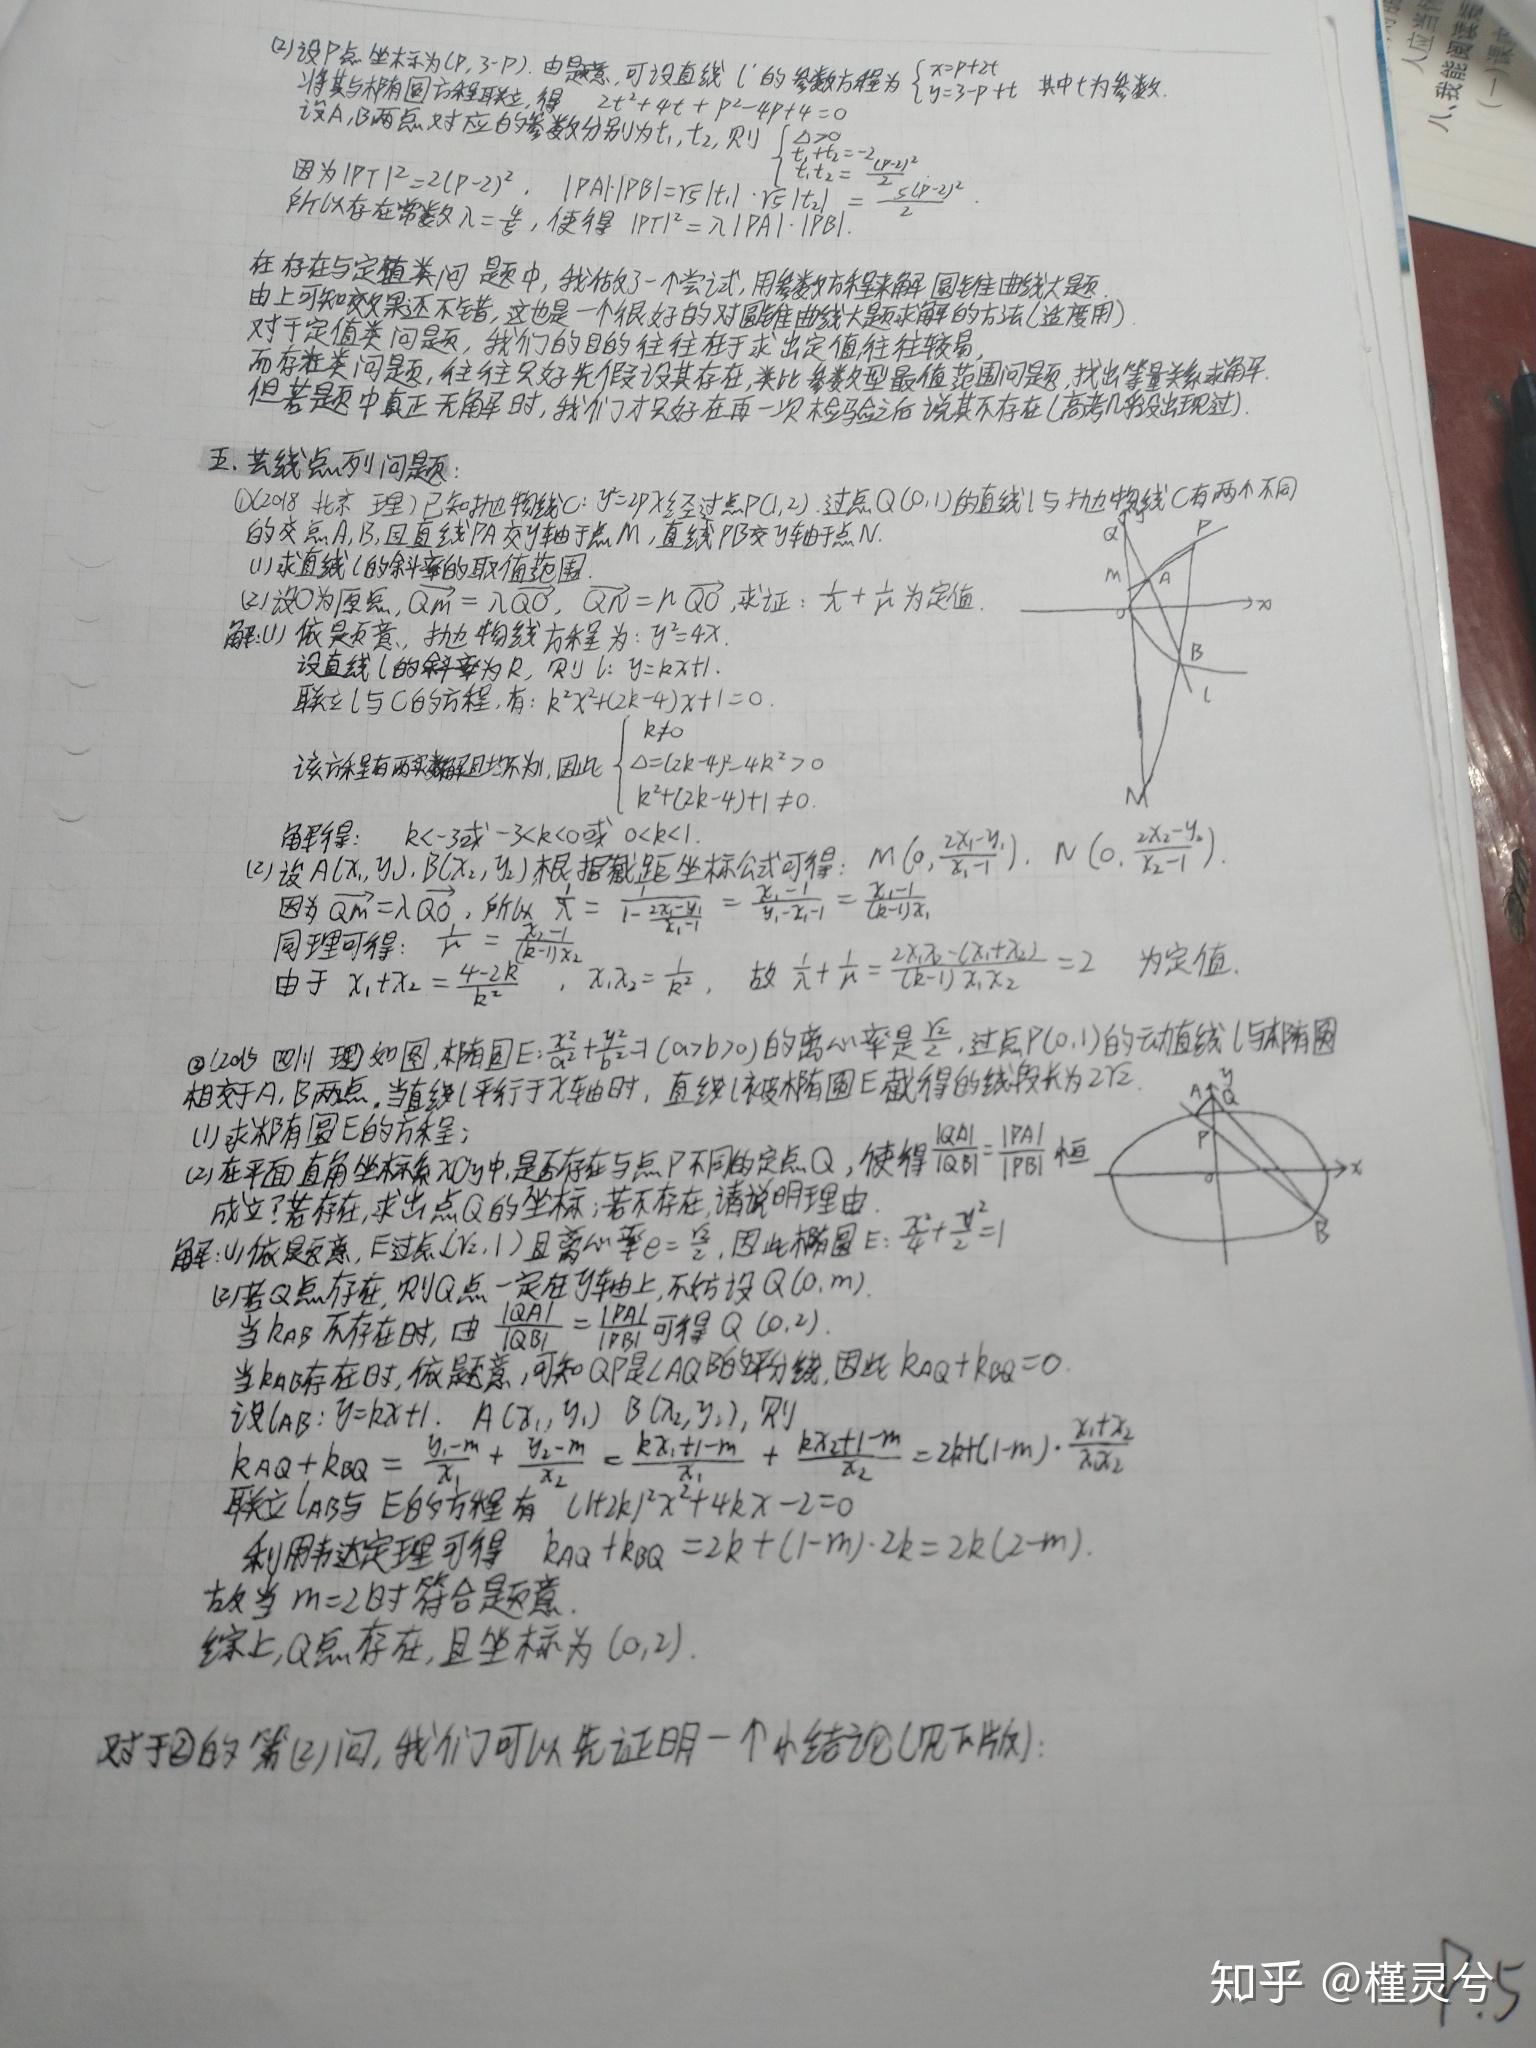 (2)设P点坐标为(p,3-p).由题意,可设直线l'的参数方程为{x=p+2t y=3-p+t 其中t为参数.
将其与椭圆方程联立,得 2t²+4t+p²-4p+4=0
设A,B两点对应的参数分别为t₁,t₂,则{Δ>0 t₁+t₂=-2 t₁t₂=(p-2)²/2
因为|PT|²=2(p-2)², |PA|·|PB|=√5|t₁|·√5|t₂|=5(p-2)²/2.
所以存在常数λ=4/5,使得|PT|²=λ|PA|·|PB|.
在存在与定值类问题中,我做了一个尝试,用参数方程来解圆锥曲线大题.
由上可知效果还不错,这也是一个很好的对圆锥曲线大题求解的方法(适度用).
对于定值类问题,我们的目的往往在于求出定值,往往较易,
而存在类问题,往往只好先假设其存在,类比参数型最值范围问题,找出等量关系求解.
但若题中真正无解时,我们才只好在再一次检验之后说其不存在(高考几乎没出现过).
五.共线点列问题:
①(2018 北京 理)已知抛物线C:y²=2px经过点P(1,2).过点Q(0,1)的直线l与抛物线C有两个不同
的交点A,B,且直线PA交y轴于点M,直线PB交y轴于点N.
(1)求直线l的斜率的取值范围.
(2)设O为原点,QM=λQO, QN=μQO,求证:1/λ+1/μ为定值.
Q
P
M
A
O
x
B
l
N
解:(1)依题意,抛物线方程为:y²=4x.
设直线l的斜率为k,则l:y=kx+1.
联立l与C的方程,有:k²x²+(2k-4)x+1=0.
该方程有两实数解且均不为1,因此{k≠0 Δ=(2k-4)²-4k²>0 k²+(2k-4)+1≠0.
解得: k<-3或-3<k<0或0<k<1.
(2)设A(x₁,y₁).B(x₂,y₂)根据截距坐标公式可得:M(0,(2x₁-y₁)/(x₁-1)). N(0,(2x₂-y₂)/(x₂-1)).
因为QM=λQO,所以1/λ=1/(1-(2x₁-y₁)/(x₁-1))=(x₁-1)/(y₁-x₁-1)=(x₁-1)/((k-1)x₁)
同理可得: 1/μ=(x₂-1)/((k-1)x₂)
由于 x₁+x₂=(4-2k)/k², x₁x₂=1/k², 故1/λ+1/μ=(2x₁x₂-(x₁+x₂))/((k-1)x₁x₂)=2 为定值.
②(2015 四川 理)如图,椭圆E:x²/a²+y²/b²=1(a>b>0)的离心率是√2/2,过点P(0,1)的动直线l与椭圆
相交于A,B两点.当直线l平行于x轴时,直线l被椭圆E截得的线段长为2√2.
(1)求椭圆E的方程;
(2)在平面直角坐标系xOy中,是否存在与点P不同的定点Q,使得|QA|/|QB|=|PA|/|PB|恒
成立?若存在,求出点Q的坐标;若不存在,请说明理由.
A
y
Q
P
O
x
B
解:(1)依题意,E过点(√2,1)且离心率e=√2/2,因此椭圆E:x²/4+y²/2=1
(2)若Q点存在,则Q点一定在y轴上,不妨设Q(0,m).
当kAB不存在时,由|QA|/|QB|=|PA|/|PB|可得Q(0,2).
当kAB存在时,依题意,可知QP是∠AQB的平分线,因此kAQ+kBQ=0.
设lAB:y=kx+1. A(x₁,y₁) B(x₂,y₂),则
kAQ+kBQ=(y₁-m)/x₁+(y₂-m)/x₂=(kx₁+1-m)/x₁+(kx₂+1-m)/x₂=2k+(1-m)·(x₁+x₂)/(x₁x₂)
联立lAB与E的方程有 (1+2k)²x²+4kx-2=0
利用韦达定理可得 kAQ+kBQ=2k+(1-m)·2k=2k(2-m).
故当m=2时符合题意.
综上,Q点存在,且坐标为(0,2).
对于②的第(2)问,我们可以先证明一个小结论(见下版):
P.5
知乎 @槿灵兮
人应当
八、我能阅读
(一)课